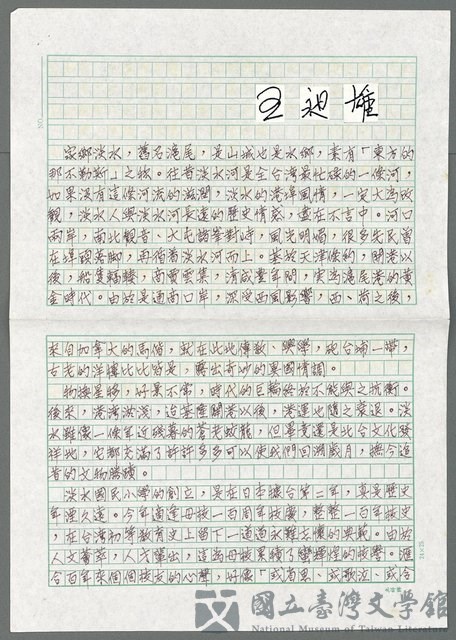 王昶雄
家鄉淡水，舊名滬尾，是山城也是水鄉，素有「東方的
那不勒斯」之稱。往昔淡水河是全台灣最忙碌的一條河，
如果沒有這條河流的滋潤，淡水的港埠風情，一定大為改
觀，淡水人與淡水河長遠的歷史情感，盡在不言中。河口
兩岸，南北觀音、大屯諸峯對峙，風光明媚，很多先民曾
在埤頭落腳，再循著淡水河而上。基於天津條約，開港以
後，船隻輻輳，商賈雲集，清咸豐年間，實為滬尾港的黃
金時代。由於是通商口岸，深受西風影響，西、荷之後，
來自加拿大的馬偕，就在此地傳教、興學，砲台埔一帶，
古老的洋樓比比皆是，釀出奇妙的異國情調。
物換星移，好景不常，時代的巨輪終於不能與之抗衡。
後來，港灣淤淺，迨基隆開港以後，港運也隨之衰退。淡
水雖像一條年近殘暮的蒼老蛟龍，但畢竟還是北台文化發
祥地，它都充滿了許許多多可以使我們回溯歲月，撫今追
昔的文物勝蹟。
淡水國民小學的創立，是在日本據台第二年，真是歷史
年湮久遠。今年適逢母校一百周年校慶，整整一百年校史
，在台灣初等教育史上留下一道道永難忘懷的典範。由於
人文薈萃，人才輩出，這為母校累積了蠻輝煌的校譽。滙
合百年來個個校友的心聲，好像「或有思、或歌泣、或合
國立臺灣文學館
National Museum of Taiwan Literature